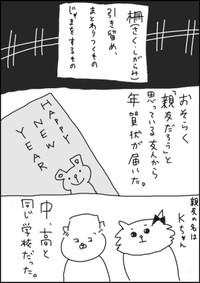 柵(さく・しがらみ)
引き留め、
まとわりつくもの
じゃまをするもの
おそらく
「親友だろう」と
思っている友人から
年賀状が届いた。
HAPPY
NEW
YEAR
親友の名は
Kちゃん
中、高と
同じ学校だった。